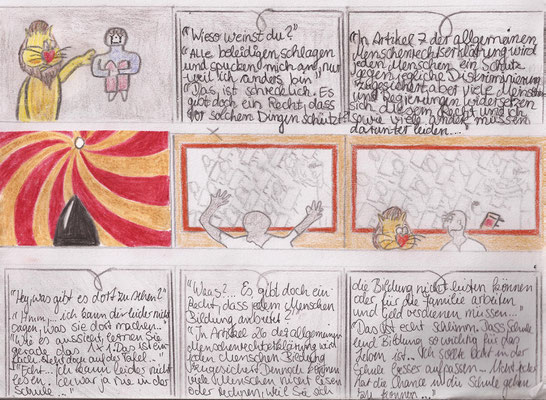 "Wieso weinst du?"
"Alle beleidigen, schlagen
und spucken mich an, nur
weil ich anders bin"
"Das ist schrecklich. Es
gibt doch ein Recht, dass
vor solchen Dingen schützt"
"In Artikel 7 der allgemeinen
Menschenrechtserklärung wird
jeden Menschen ein Schutz
gegen jegliche Diskriminierung
zugesichert, aber viele Menschen
und Regierungen widersetzen
sich diesem Recht und ich
sowie viele andere müssen
darunter leiden..."
"Hey, was gibt es dort zu sehen?"
"Hmm, ich kann dir leider nicht
sagen, was sie dort machen."
"Wie es aussieht lernen sie
gerade das
steht doch auf der Tafel."
"Echt... Ich kann leider nicht
lesen. Ich war ja nie in der
Schule..."
"Was?... Es gibt doch ein
Recht, dass jedem Menschen
Bildung anbietet?"
"In Artikel 26 der allgemeinen
Menschenrechtserklärung wird
jeden Menschen Bildung
zugesichert. Dennoch können
viele Menschen nicht lesen
oder rechnen, weil sie sich
die Bildung nicht leisten können
oder für die Familie arbeiten
und Geld verdienen müssen..."
"Das ist echt schlimm. Dass Schule
und Bildung so wichtig für das
Leben ist.. Ich sollte in der
Schule besser aufpassen... Nicht jeder
hat die Chance in die Schule gehen
zu können..."